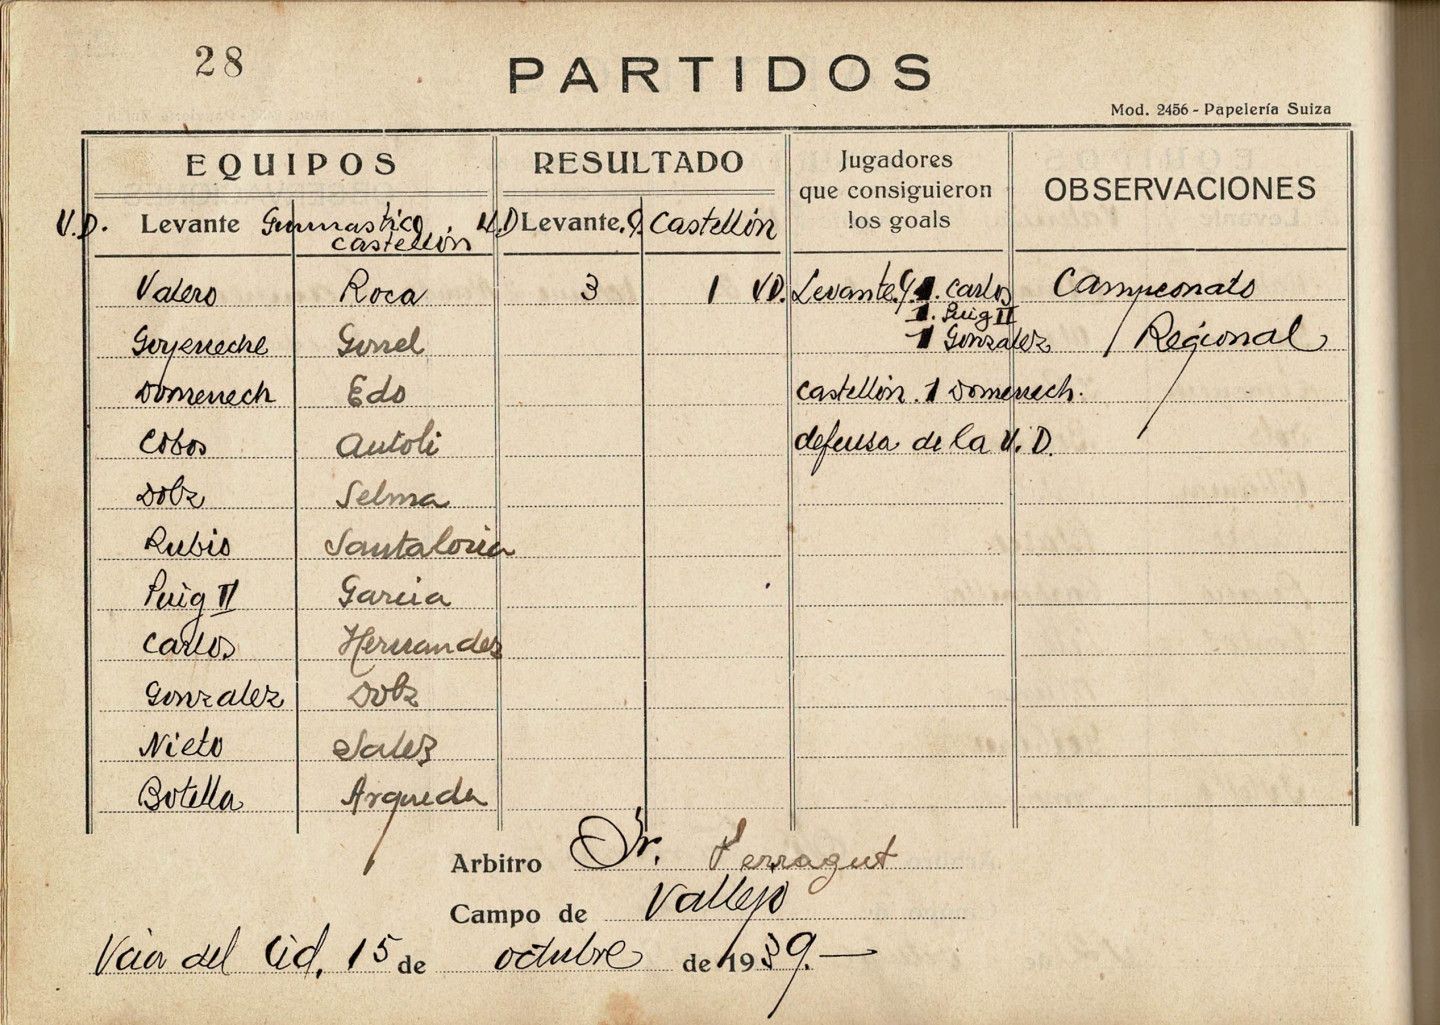 28
PARTIDOS
Mod. 2456 - Papelería Suiza
EQUIPOS RESULTADO Jugadores que consiguieron los goals OBSERVACIONES
U.D. Levante Gimnastico. Castellón U.D Levante.G. Castellón
Valero Roca 3 1 UD. Levante.G. 1. Carlos Campeonato
1. Puig II
Goyeneche Gonel 1 Gonzalez Regional
Domenech Edo Castellón. 1 Domenech.
Cobos Antoli defensa de la U.D.
Dolz Selma
Rubio Santaloria
Puig II Garcia
Carlos Hernandez
Gonzalez Dolz
Nieto Salez
Botella Arqueda
Arbitro Sr. Ferragut
Campo de Vallejo
Vcia del Cid, 15 de octubre de 1939.—